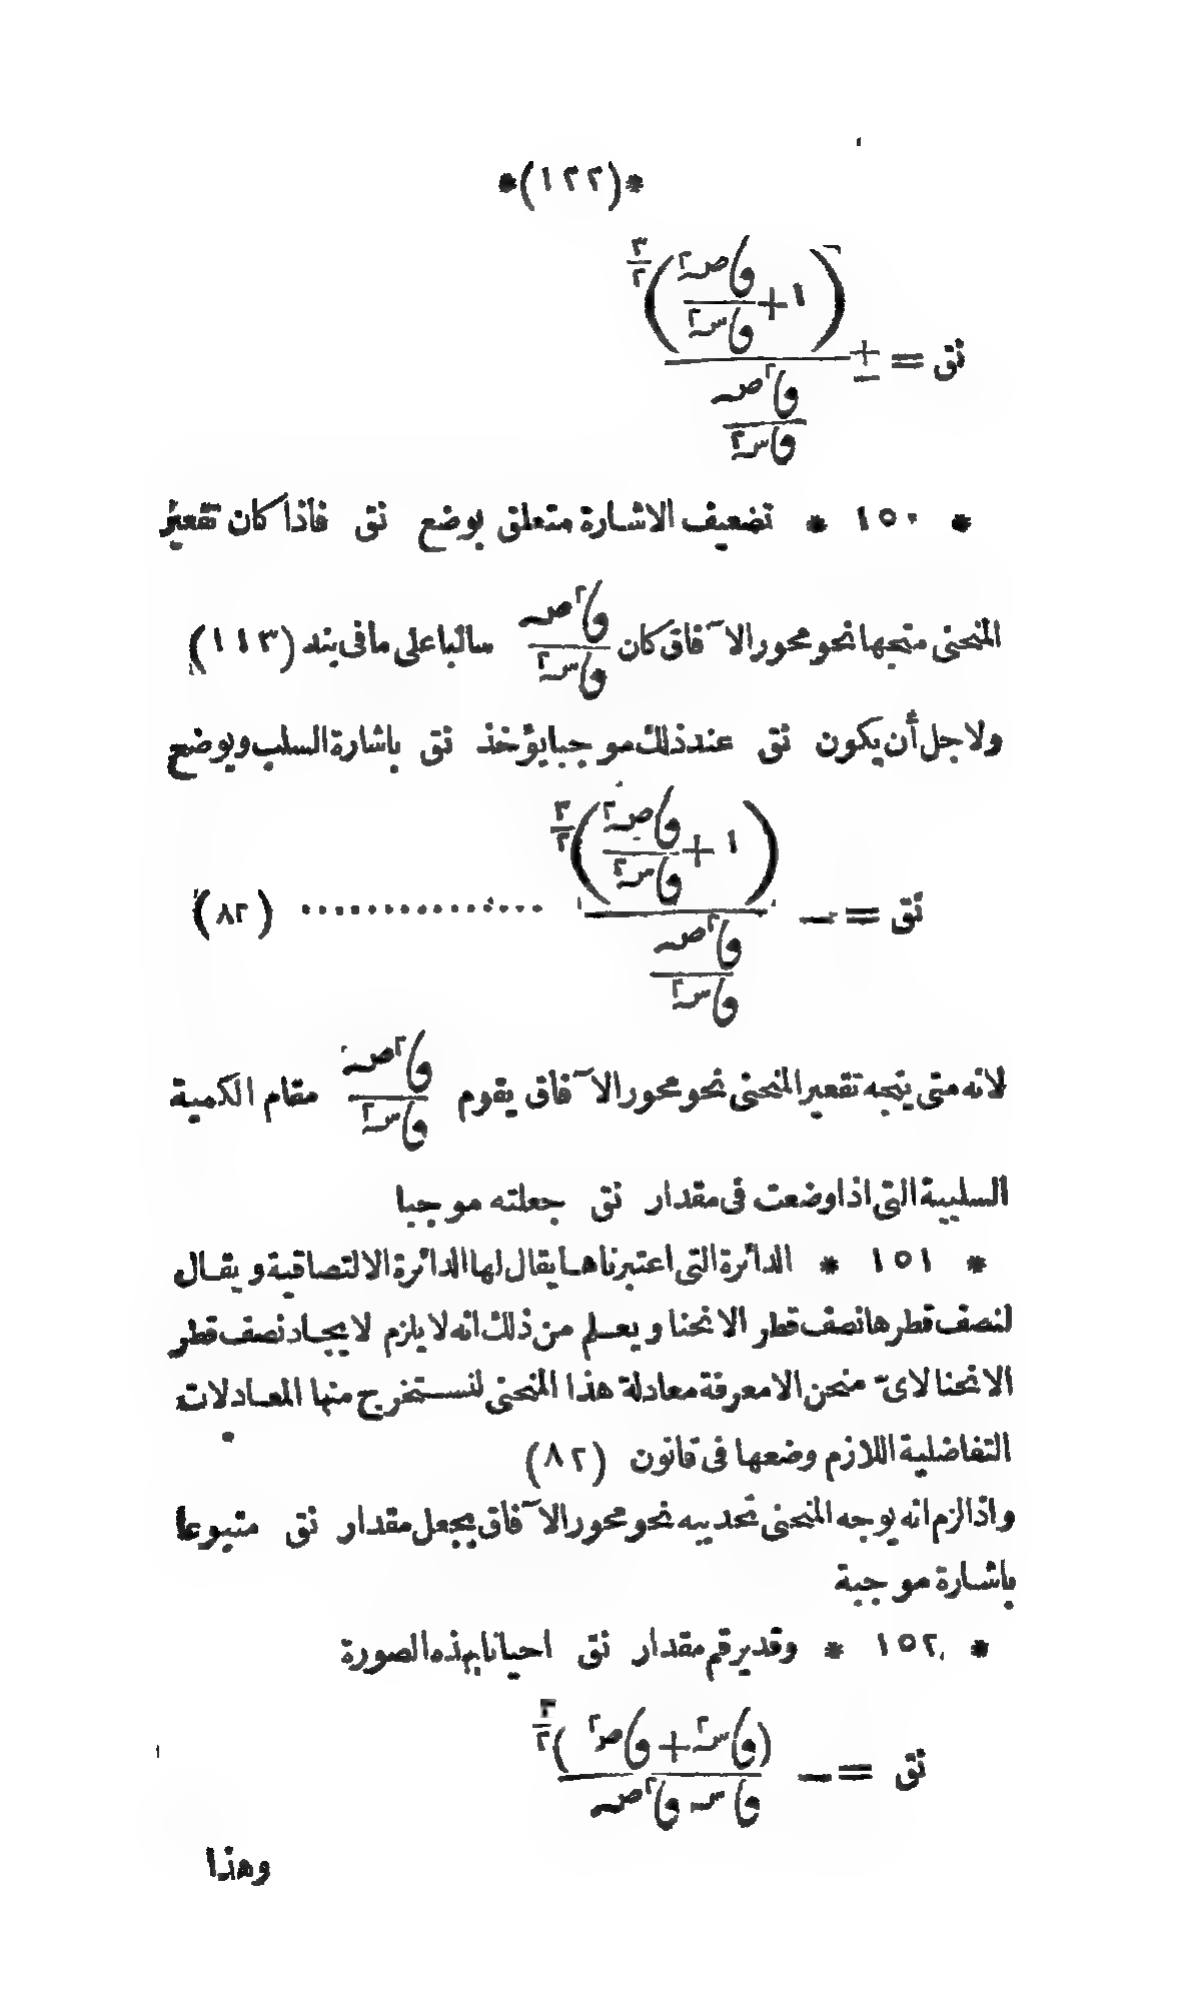 *(١٢٢)*
نق = ± (١ + وٓصـ٢ / وٓسـ٢)^(٣/٢) / (وٓ٢صـ / وٓسـ٢)
* ١٥٠ * تضعيف الاشارة متعلق بوضع نق فاذا كان تقعير
المنحنى متجها نحو محور الآفاق كان وٓ٢صـ / وٓسـ٢ سالبا على ما فى بند (١١٣)
ولاجل أن يكون نق عند ذلك موجبا يؤخذ نق باشارة السلب ويوضع
نق = − (١ + وٓصـ٢ / وٓسـ٢)^(٣/٢) / (وٓ٢صـ / وٓسـ٢) ............... (٨٢)
لانه متى يتجه تقعير المنحنى نحو محور الآفاق يقوم وٓ٢صـ / وٓسـ٢ مقام الكمية
السلبية التى اذا وضعت فى مقدار نق جعلته موجبا
* ١٥١ * الدائرة التى اعتبرناها يقال لها الدائرة الالتصاقية ويقال
لنصف قطرها نصف قطر الانحنا ويعلم من ذلك انه لا يلزم لايجاد نصف قطر
الانحنا لاىّ منحن الا معرفة معادلة هذا المنحنى لنستخرج منها المعادلات
التفاضلية اللازم وضعها فى قانون (٨٢)
واذا لزم انه يوجه المنحنى تحديبه نحو محور الآفاق يجعل مقدار نق متبوعا
باشارة موجبة
* ١٥٢ * وقد يرقم مقدار نق احيانا بهذه الصورة
نق = − (وٓسـ٢ + وٓصـ٢)^(٣/٢) / (وٓسـ وٓ٢صـ)
وهذا